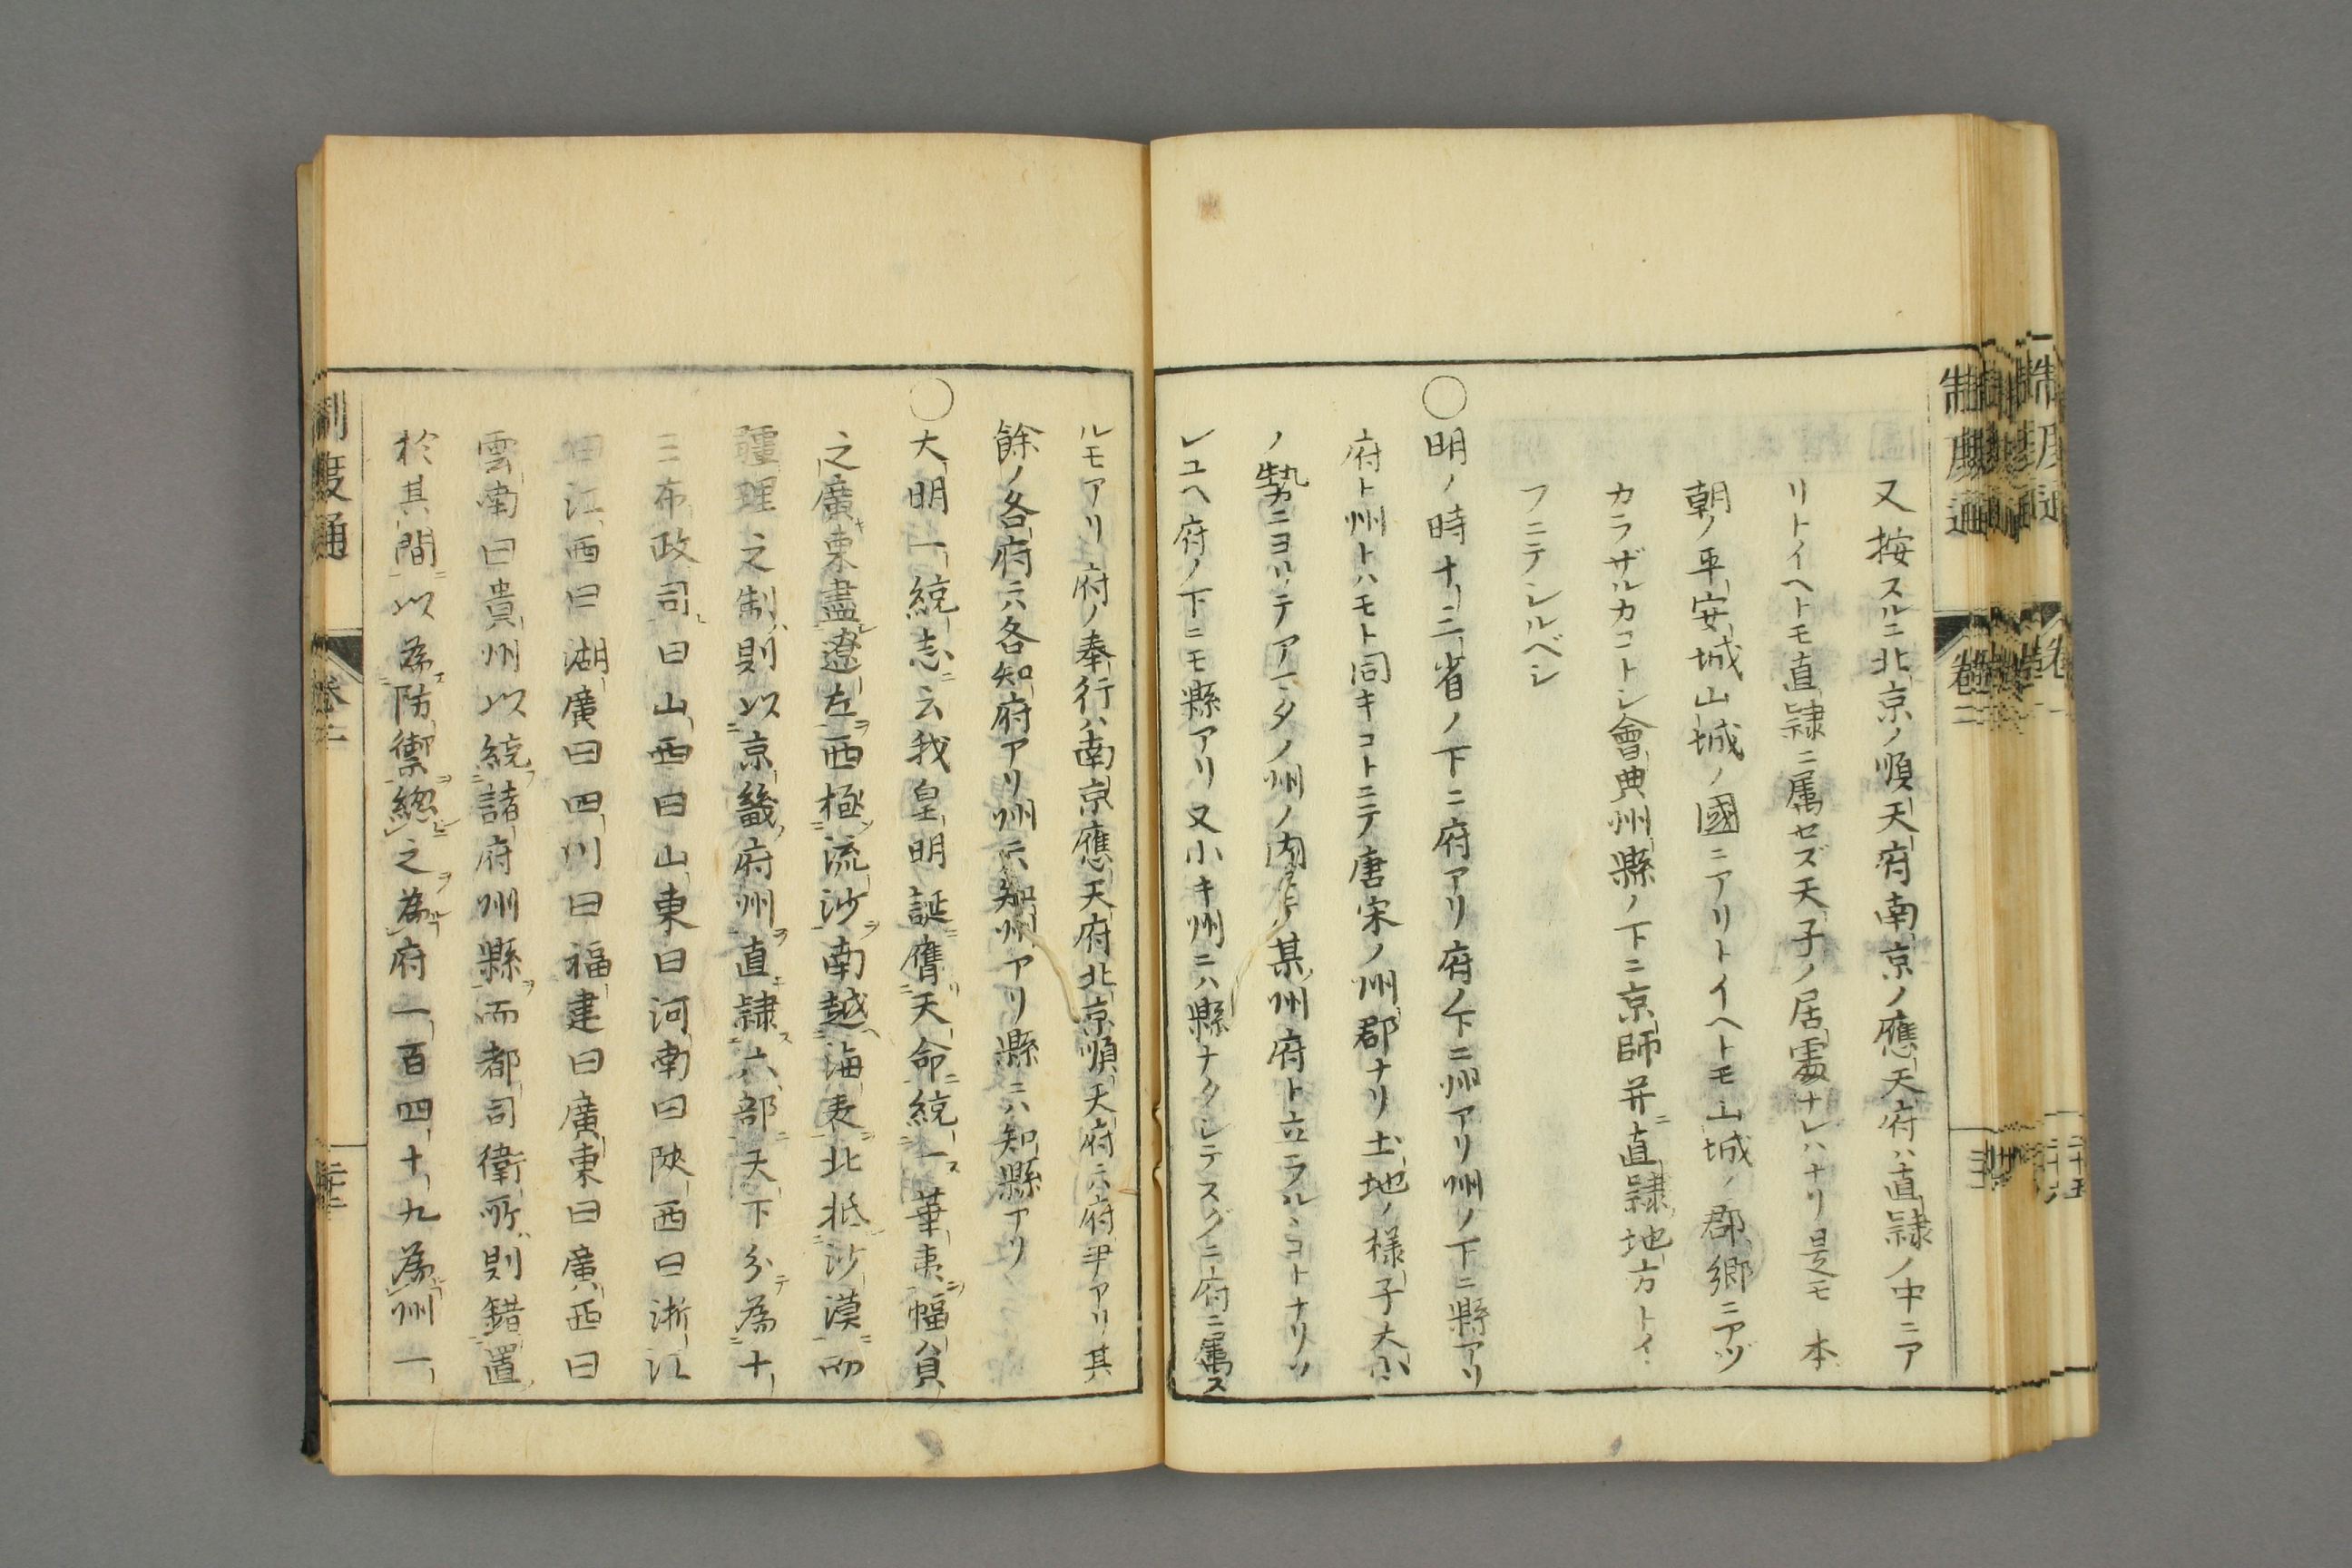 又按スルニ北京ノ順天府南京ノ應天府ハ直隷ノ中ニア
リトイヘトモ直隷ニ属セズ天子ノ居處ナレハナリ是モ本
朝ノ平安城山城ノ國ニアリトイヘトモ山城ノ郡郷ニアヅ
カラザルカコトシ會典州縣ノ下ニ京師并ニ直隷地方トイ
フニテシルベシ
〇明ノ時十三省ノ下ニ府アリ府ノ下ニ州アリ州ノ下ニ縣アリ
府ト州トハモト同キコトニテ唐宋ノ州郡ナリ土地ノ様子大小
ノ勢ニヨリテアマタノ州ノ内ニテ某州府ト立ラルヽコトナリソ
レユヘ府ノ下ニモ縣アリ又小キ州ニハ縣ナクシテスグニ府ニ属ス
ルモアリ府ノ奉行ハ南京應天府北京順天府ニハ府尹アリ其
餘ノ各府ニハ各知府アリ州ニハ知州アリ縣ニハ知縣アリ
〇大明一統志ニ云我皇明誕膺天命統一華夷幅員
之廣東盡遼左西極流沙南越海表北抵沙漠而
疆理之制則以京畿府州直隷六部天下分為十
三布政司曰山西曰山東曰河南曰陝西曰浙江
曰江西曰湖廣曰四川曰福建曰廣東曰廣西曰
雲南曰貴州以統諸府州縣而都司衛所則錯置
於其間以為防禦總之為府一百四十九為州一
制度通
卷二
制度通
卷二